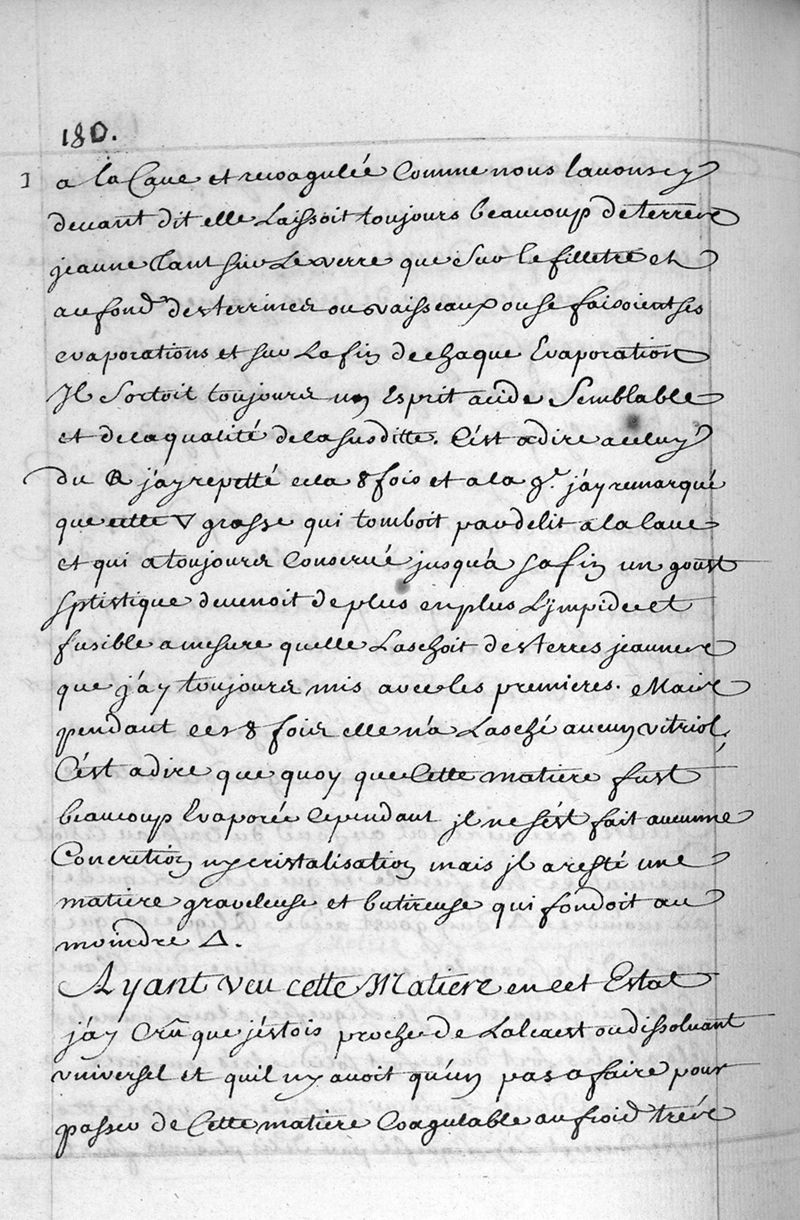 180.
a la Cave et recoagulée Comme nous lavons cy
devant dit elle Laissoit toujours beaucoup de terre
jeaune tant sur Le verre que sur le filletre et
au fond des terrines ou vaisseaux ou se faisoient ses
evaporations et sur La fin de chaque Evaporation
Il Sortoit toujours un Esprit acide Semblable
et de la qualité de la susditte. C'ést a dire a celuy
du j'ay repetté cela 8 fois et a la 9e. j'ay remarqué
que cette 🜄 grasse qui tomboit par delit a la Cave
et qui a toujours Conservé jusqu'a sa fin un goust
sptistique devenoit de plus en plus Lympide et
fusible a mesure quelle Laschoit des terres jeaunes
que j'ay toujours mis avec les premieres. Mais
pendant ces 8 fois elle n'a Lasché aucun vitriol,
C'ést a dire que quoy que Cette matiere fust
beaucoup Evaporée Cependant jl ne s'ést fait aucunne
Concretion ny cristalisation mais jl a resté une
matiere graveleuse et butireuse qui fondoit au
moindre 🜂.
Ayant veu cette Matiere en cet Estat
j'ay Crû que j'éstois proche de Lalcaest ou dissolvant
vniversel et quil ny avoit qu'un pas a faire pour
passer de Cette matiere Coagulable au froid trés